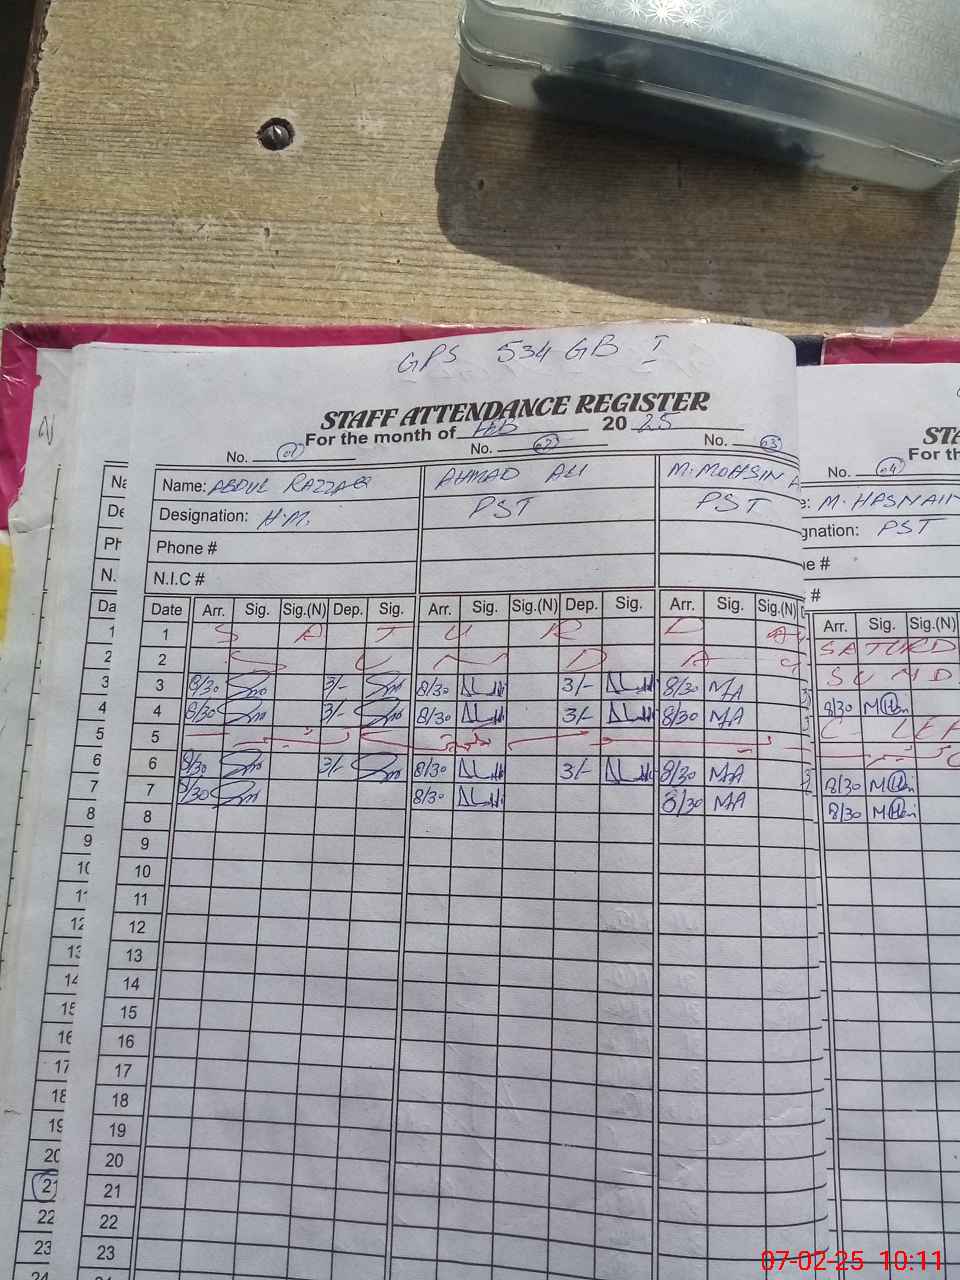 GPS 534 GB I
STAFF ATTENDANCE REGISTER
For the month of FEB 20 25
No. 01 No. 02 No. 03
Name: ABDUL RAZZAQ AHMAD ALI M. MOHSIN A
Designation: H.M. PST PST
Phone #
N.I.C #
Date Arr. Sig. Sig.(N) Dep. Sig. Arr. Sig. Sig.(N) Dep. Sig. Arr. Sig. Sig.(N)
1 S A T U R D A
2 S U N D A Y
3 8/30 3/- 8/30 3/- 8/30 MA
4 8/30 3/- 8/30 3/- 8/30 MA
5
6 8/30 3/- 8/30 3/- 8/30 MA
7 8/30 8/30 8/30 MA
8
9
10
11
12
13
14
15
16
17
18
19
20
21
22
23
STA
For th
No. 04
e: M. HASNAIN
gnation: PST
ne #
#
Arr. Sig. Sig.(N)
SATURD
SUND
8/30
C- LEA
8/30
8/30
Na
De
Ph
N.
Da
1
2
3
4
5
6
7
8
9
10
11
12
13
14
15
16
17
18
19
20
21
22
23
24
07-02-25 10:11